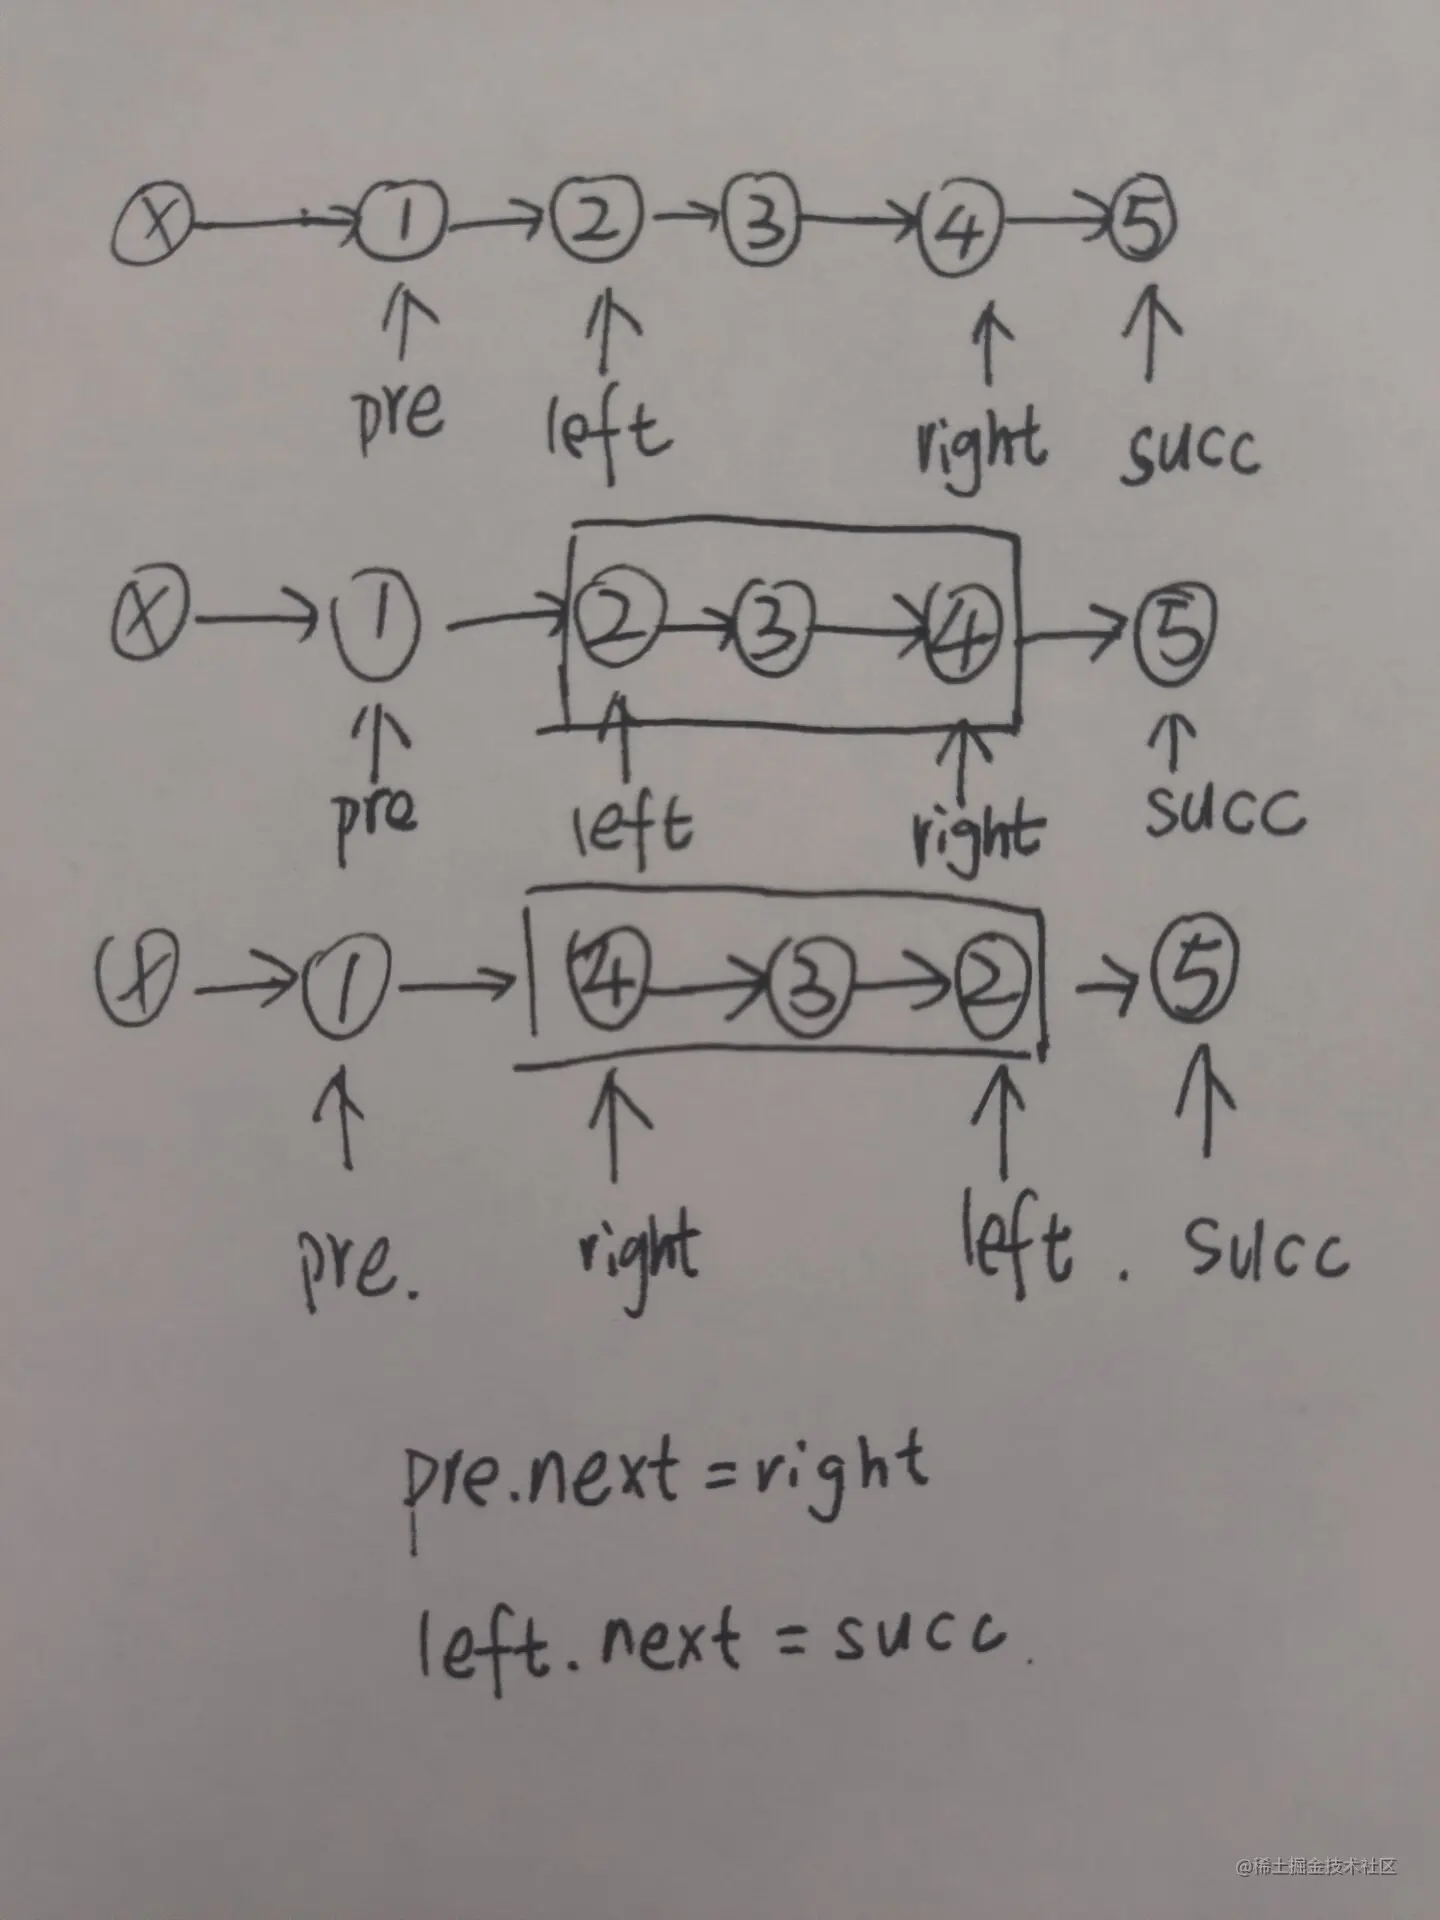 X 1 2 3 4 5
pre left right succ
X 1 2 3 4 5
pre left right succ
X 1 4 3 2 5
pre. right left. succ
pre.next = right
left.next = succ.
@稀土掘金技术社区